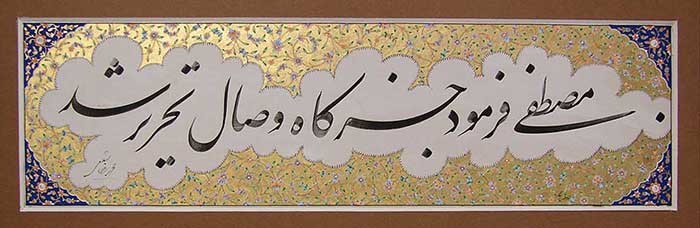 مصطفی فرمود خرگاه وصال تحریر شد